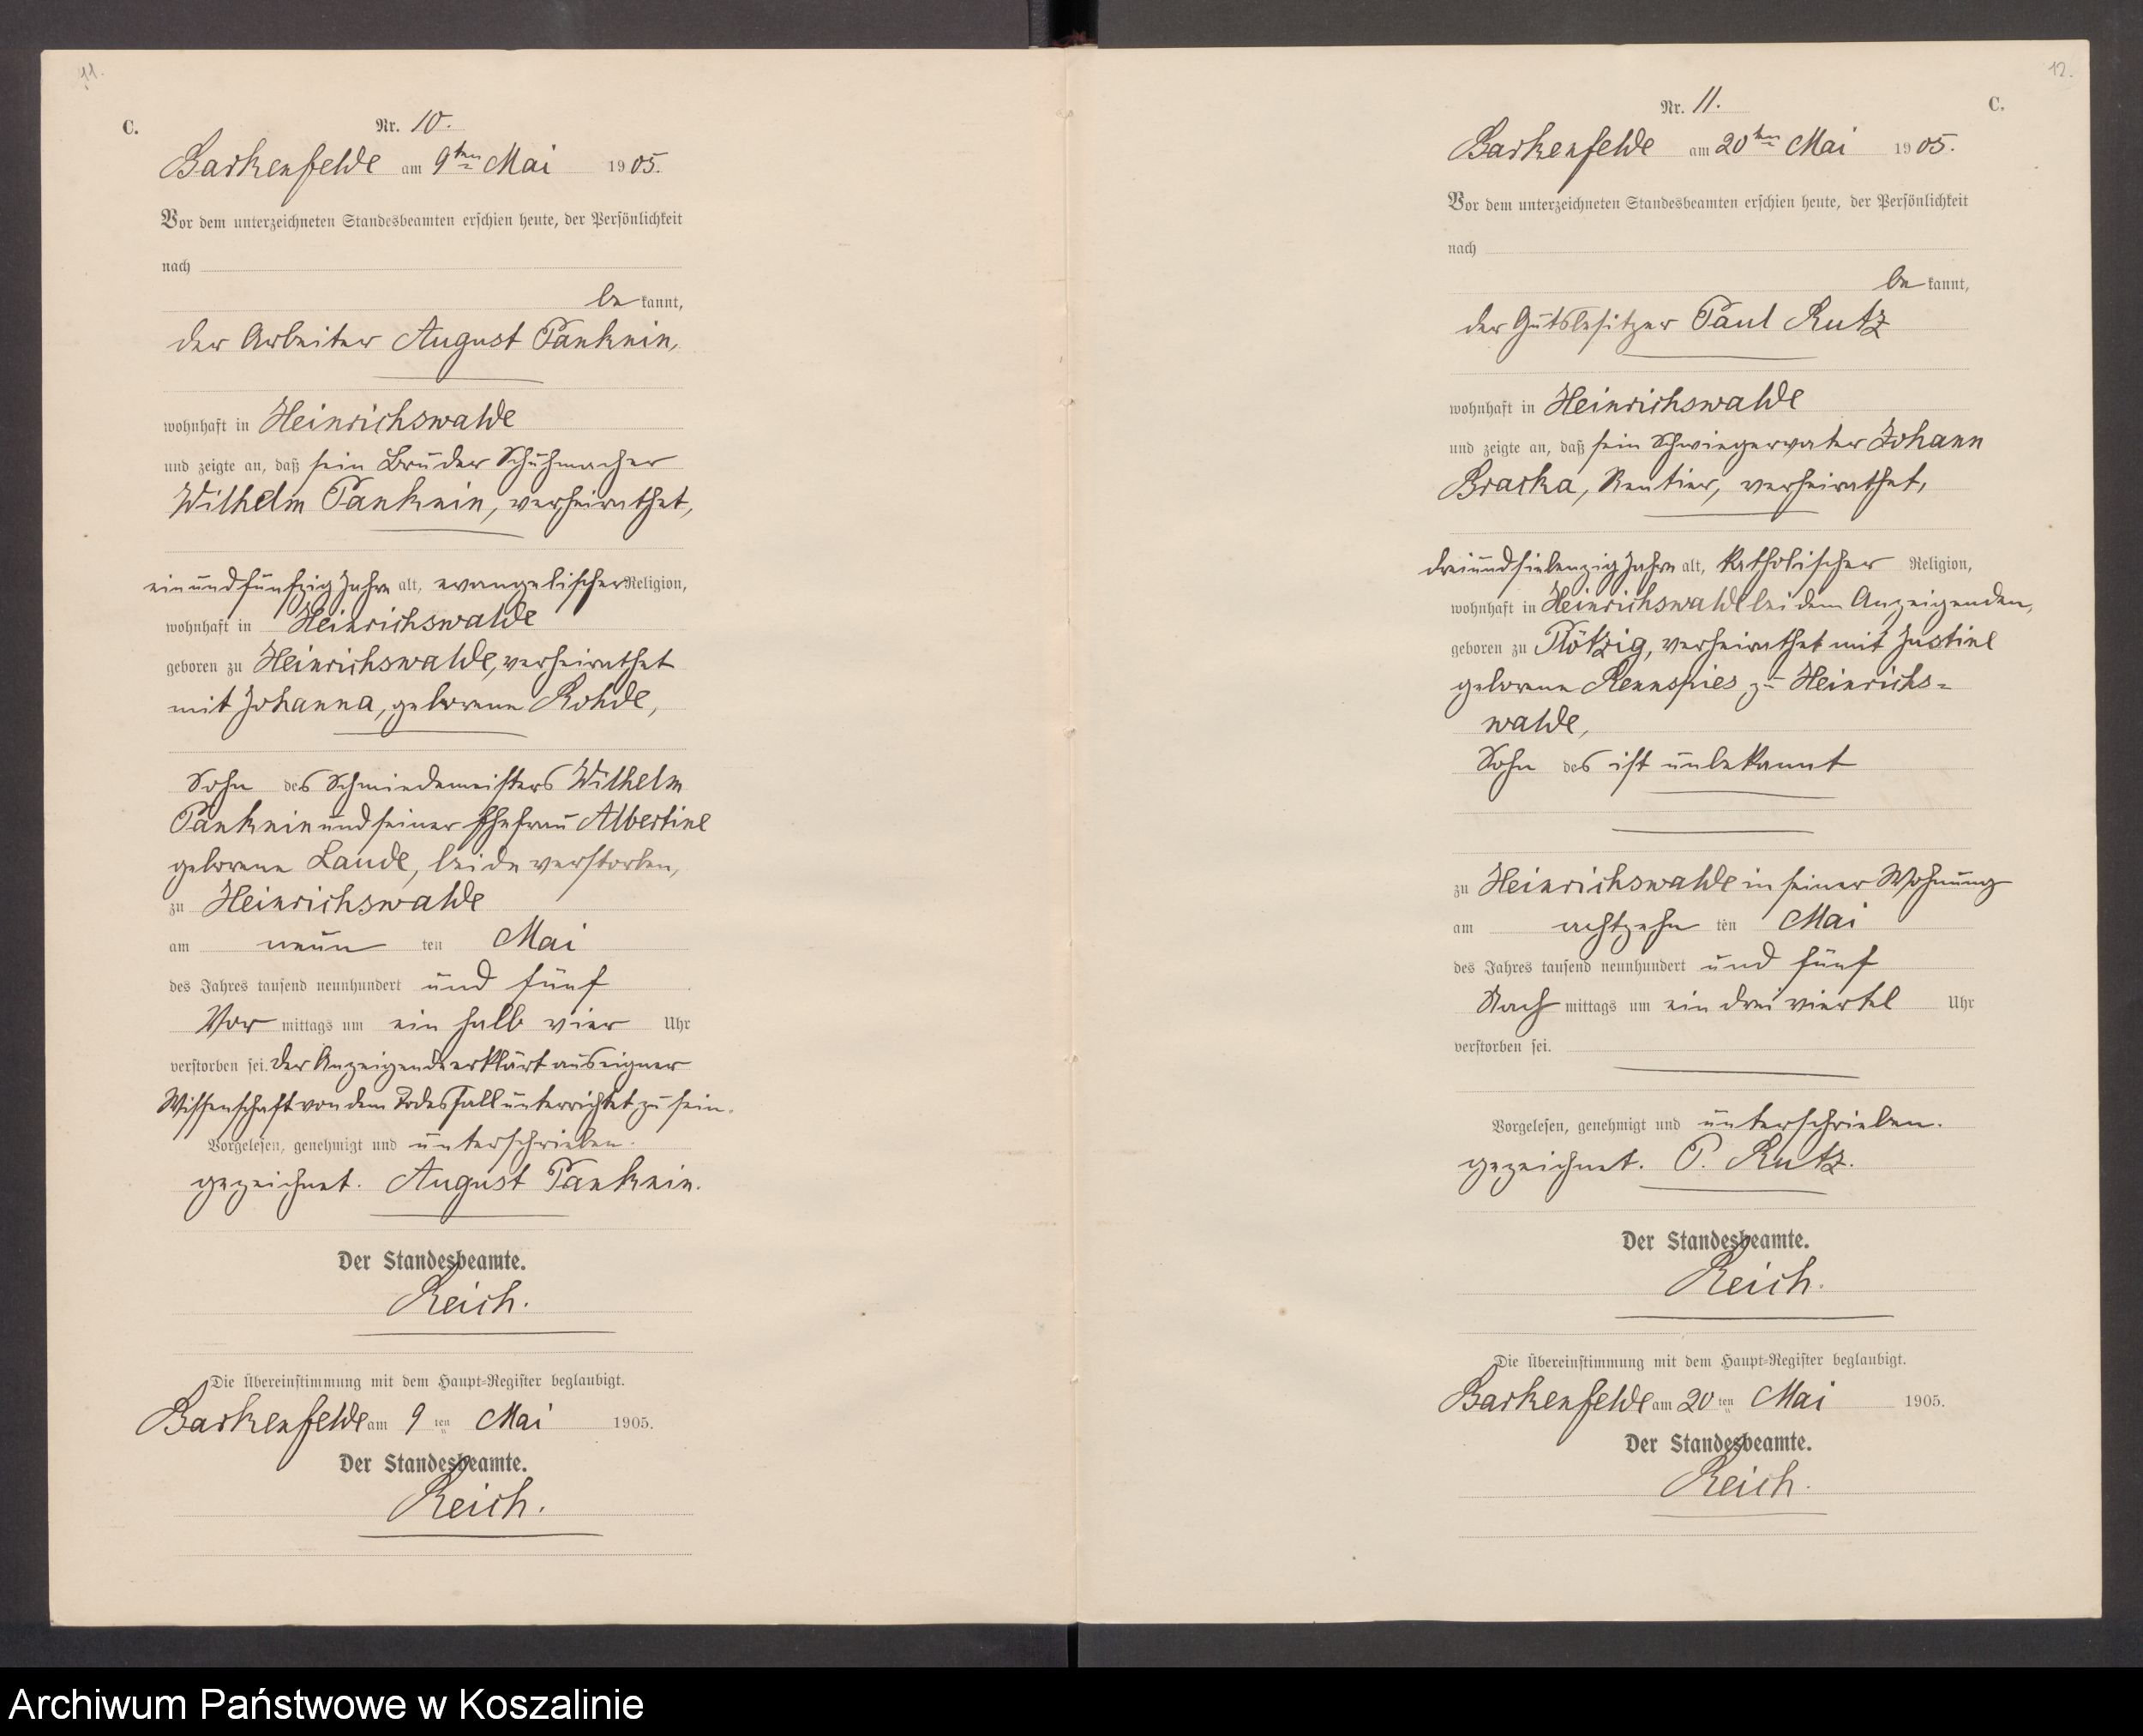 11.
C.
Nr. 10.
Barkenfelde am 9ten Mai 1905.
Vor dem unterzeichneten Standesbeamten erschien heute, der Persönlichkeit
nach
be kannt,
der Arbeiter August Panknin,
wohnhaft in Heinrichswalde
und zeigte an, daß sein Bruder Schuhmacher
Wilhelm Panknin, verheirathet,
einundfünfzig Jahre alt, evangelischer Religion,
wohnhaft in Heinrichswalde
geboren zu Heinrichswalde, verheirathet
mit Johanna, geborene Rohde,
Sohn des Schmiedemeisters Wilhelm
Panknin und seiner Ehefrau Albertine
geborene Laude, beide verstorben,
zu Heinrichswalde
am neun ten Mai
des Jahres tausend neunhundert und fünf
Vor mittags um ein halb vier Uhr
verstorben sei. Der Anzeigende erklärt aus eigner
Wissenschaft von dem Todesfall unterrichtet zu sein.
Vorgelesen, genehmigt und unterschrieben.
gezeichnet. August Panknin.
Der Standesbeamte.
Reich.
Die Übereinstimmung mit dem Haupt-Register beglaubigt.
Barkenfelde am 9 ten Mai 1905.
Der Standesbeamte.
Reich.
12.
C.
Nr. 11.
Barkenfelde am 20ten Mai 1905.
Vor dem unterzeichneten Standesbeamten erschien heute, der Persönlichkeit
nach
be kannt,
der Gutsbesitzer Paul Rutz
wohnhaft in Heinrichswalde
und zeigte an, daß sein Schwiegervater Johann
Braska, Rentier, verheirathet,
dreiundsiebenzig Jahre alt, katholischer Religion,
wohnhaft in Heinrichswalde bei dem Anzeigenden,
geboren zu Plötzig, verheirathet mit Justine
geborene Rennspies zu Heinrichs=
walde,
Sohn des ist unbekannt
zu Heinrichswalde in seiner Wohnung
am achtzehn ten Mai
des Jahres tausend neunhundert und fünf
Nach mittags um ein drei viertel Uhr
verstorben sei.
Vorgelesen, genehmigt und unterschrieben.
gezeichnet. P. Rutz.
Der Standesbeamte.
Reich.
Die Übereinstimmung mit dem Haupt-Register beglaubigt.
Barkenfelde am 20 ten Mai 1905.
Der Standesbeamte.
Reich.
Archiwum Państwowe w Koszalinie